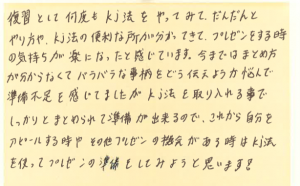 復習として何度もkj法をやってみて、だんだんと
やり方や、kj法の便利な所が分かってきて、プレゼンをする時
の気持ちが楽になったと感じています。今まではまとめ方
が分からなくてバラバラな事柄をどう伝えようか悩んで
準備不足を感じてましたがkj法を取り入れる事で
しっかりとまとめられて準備が出来るので、これから自分を
アピールする時やその他プレゼンの機会がある時はkj法
を使ってプレゼンの準備をしてみようと思います!